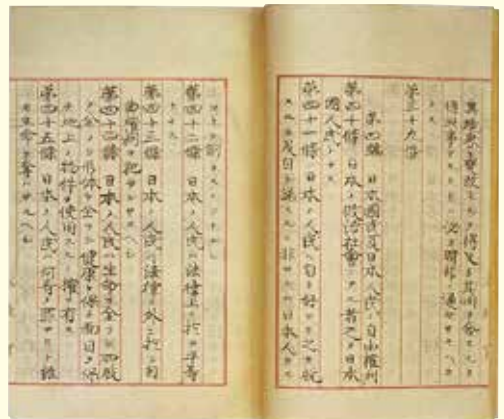 第三十九條
第四編　日本國民及日本人民ノ自由權利
第四十條　日本ノ政治社會ニアル者之ヲ日本
國人民トナス
第四十一條　日本ノ人民ハ自ラ好ンテ之ヲ脱
スルカ及自ラ諾スルニ非サレハ日本人タル
コトヲ削カルヽコトナシ
第四十二條　日本ノ人民ハ法律上ニ於テ平等
トナス
第四十三條　日本ノ人民ハ法律ノ外ニ於テ自
由權利ヲ犯サレサルヘシ
第四十四條　日本ノ人民ハ生命ヲ全フシ四肢
ヲ全フシ形体ヲ全フシ健康ヲ保チ面目ヲ保
チ地上ノ物件ヲ使用スルノ權ヲ有ス
第四十五條　日本ノ人民ハ何等ノ罪アリト雖
モ生命ヲ奪ハサルヘシ